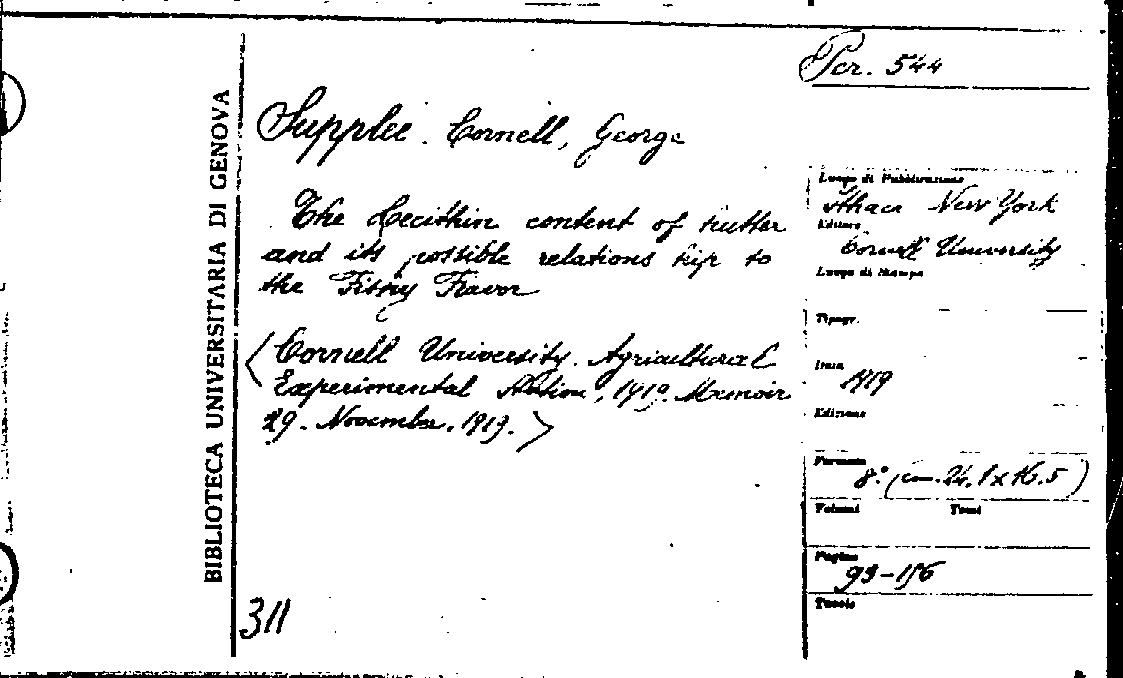 BIBLIOTECA UNIVERSITARIA DI GENOVA
Per. 544
Supplee. Cornell, George
The Lecithin content of butter
and its possible relations hip to
the Fishy Flavor
(Cornell University. Agricultural
Experimental Station, 1919. Memoir
29. November. 1919.)
311
Luogo di Pubblicazione
Ithaca New York
Editore
Cornell University
Luogo di Stampa
Tipogr.
Data
1919
Edizione
Formato
8.° (cm. 24.1 x 16.5)
Volumi Tomi
Pagine
93-156
Tavole